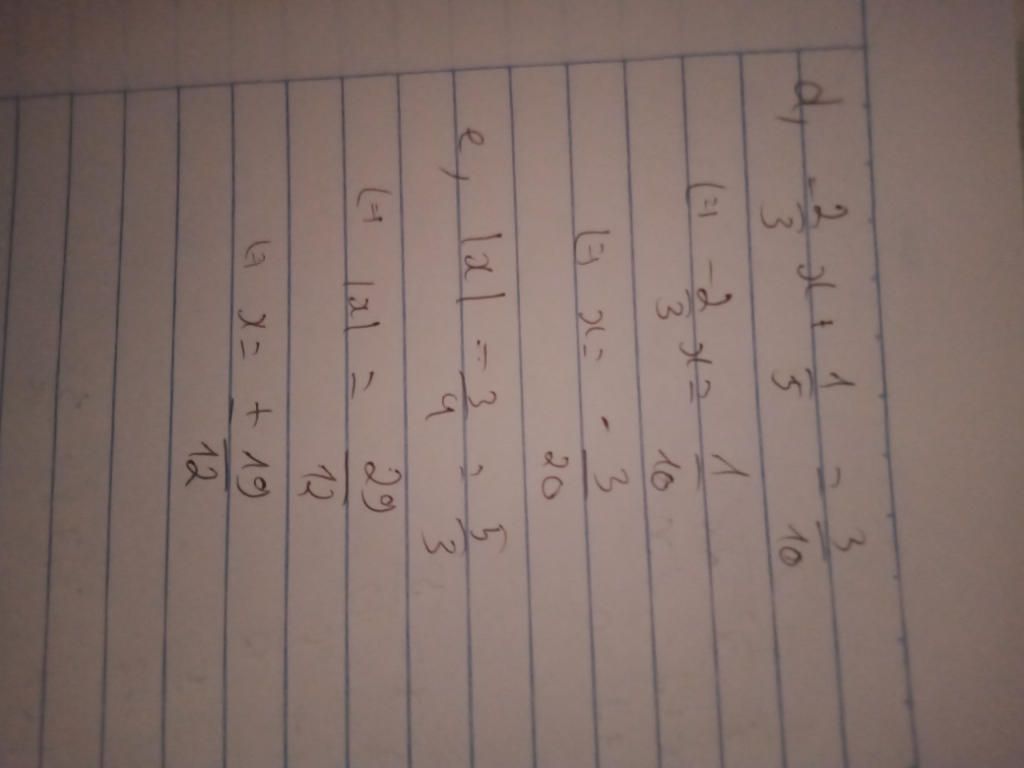 d, -2/3 x + 1/5 = 3/10
(=) -2/3 x = 1/10
(=) x = -3/20
e, |x| - 3/4 = 5/3
(=) |x| = 29/12
(=) x = ± 19/12